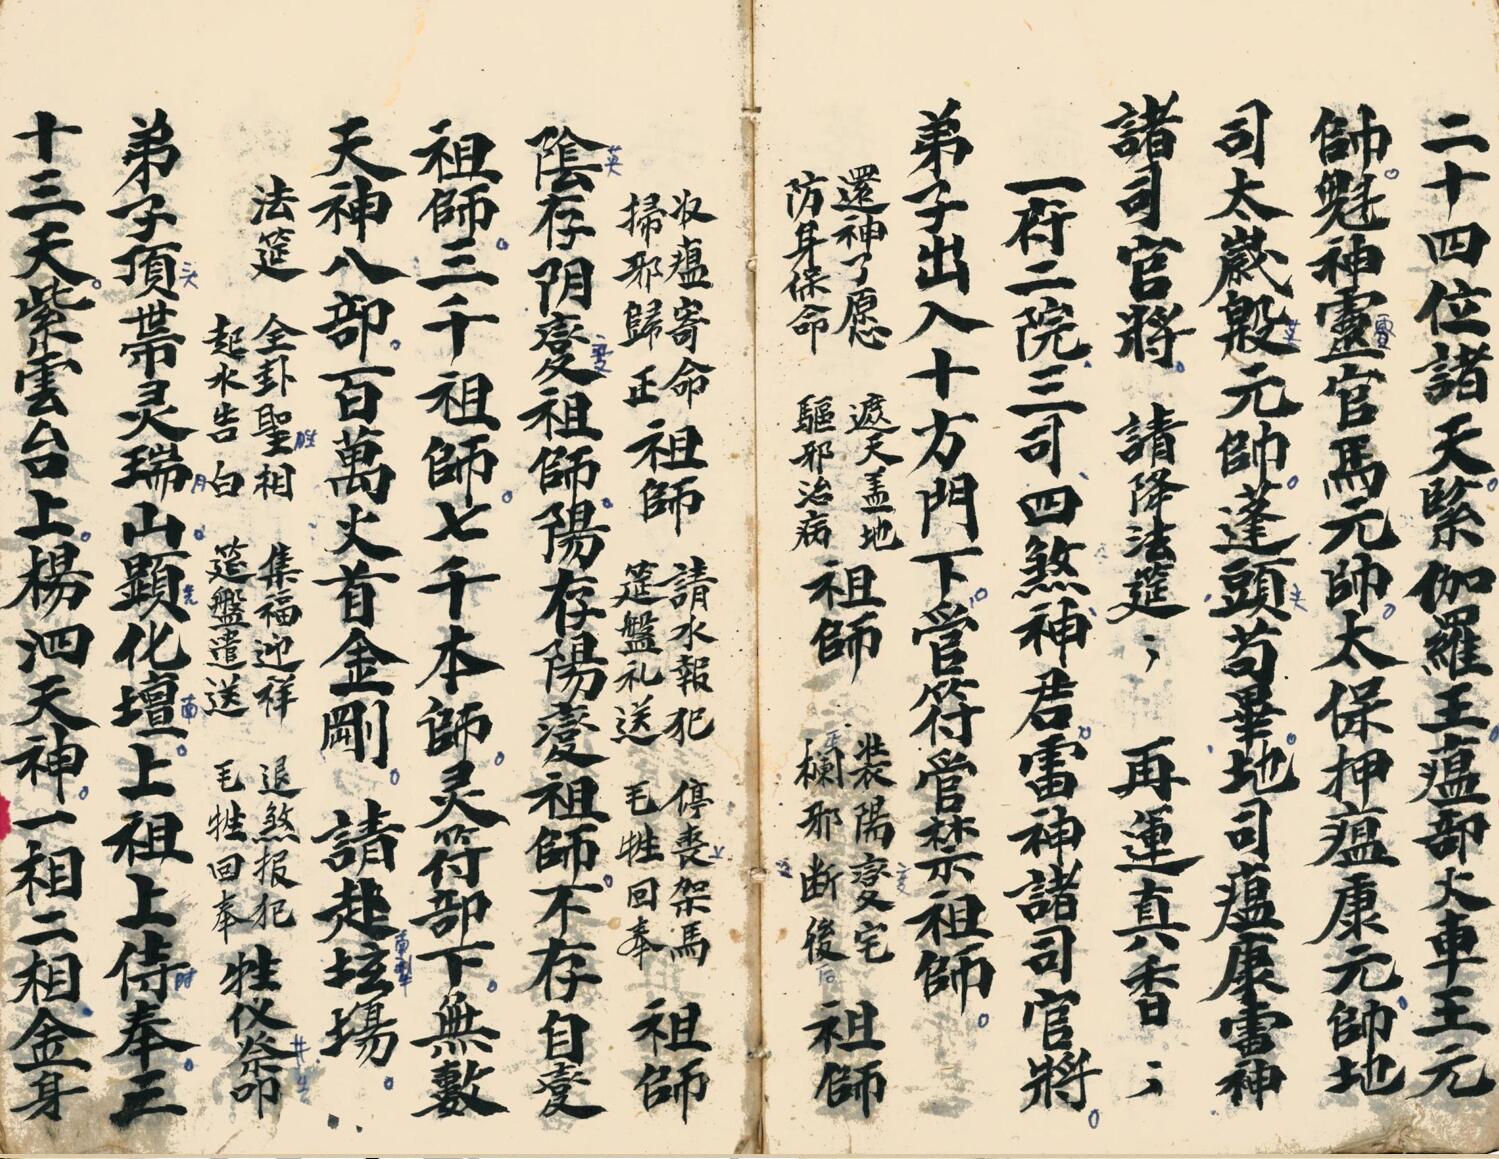 二十四位諸天緊伽羅王瘟部火車王元
帥魁神靈官馬元帥太保押瘟康元帥地
司太歲殷元帥蓬頭苟畢地司瘟康雷神
諸司官將 請降法筵 再運真香
一府二院三司四煞神君雷神諸司官將
弟子出入十方門下管符管禁祖師
還神了愿 遮天盖地 裝陽變宅
防身保命 驅邪治病 祖師 欄邪断後 祖師
收瘟寄命 請水報犯 停喪架馬
掃邪歸正 祖師 筵盤礼送 毛牲回奉 祖師
陰存阴变祖師陽存陽变祖師不存自变
祖師三千祖師七千本師灵符部下無數
天神八部百萬火首金剛 請赴坛場
法筵 全卦聖相 集福迎祥 退煞报犯
起水告白 筵盤遣送 毛牲回奉 牲仪祭
弟子頂帶灵瑞山顯化壇上祖上侍奉三
十三天紫雲台上楊泗天神一相二相金身